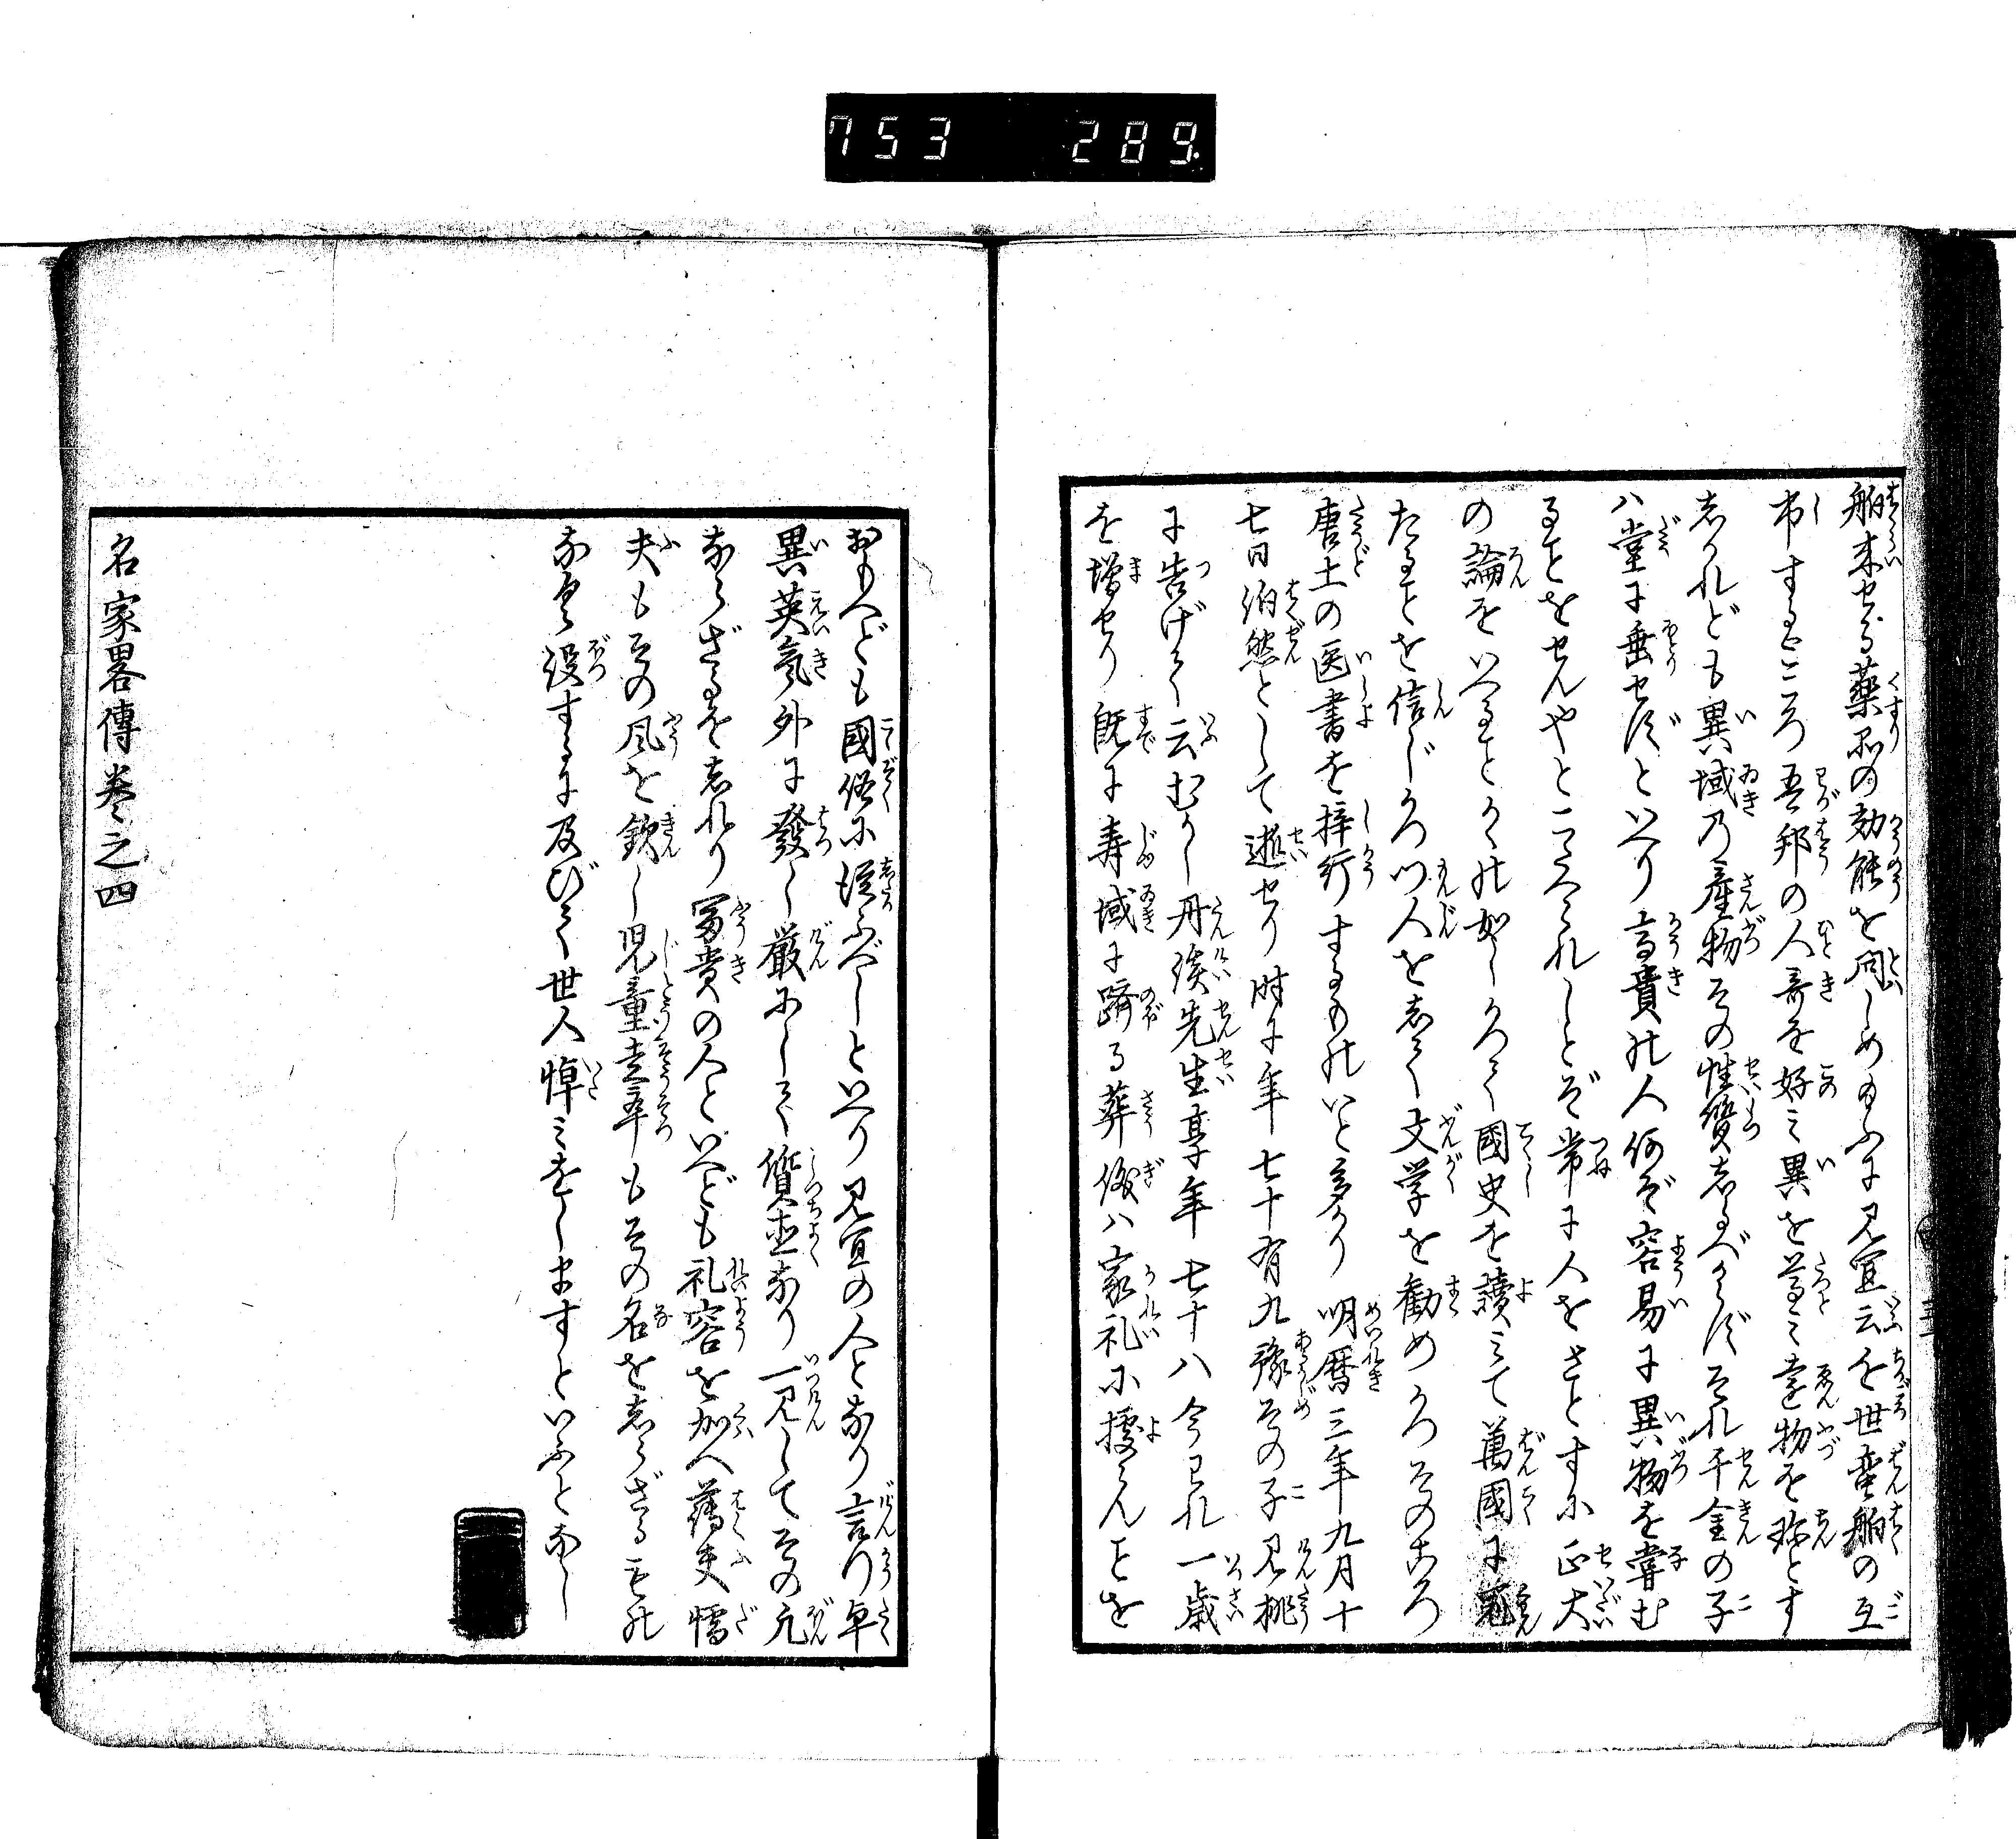 753 289.
舶来せる薬品の効能を問しめ給ふに見宜云を世蛮舶の互
市するところ吾邦の人奇を好ミ異を尊ミ遠物を珍とす
しかれども異域乃産物その性質しるべからずそれ千金の子
ハ堂に垂せずといへり高貴の人何ぞ容易に異物を甞む
ることをせんやとこたへられしとぞ常に人をさとすに正大
の論をいへることかくの如しかつて國史を讀ミて萬國に冠
たることを信じかつ門人をして文学を勧めかつそのころ
唐土の医書を梓行するものいと多かり明暦三年九月十
七日泊然として逝せり時に年七十有九豫その子見桃
に告げて云むかし丹溪先生享年七十八今われ一歳
を増せり既に寿域に躋る葬儀ハ家礼に擾らんことを
おもへども國俗に従ふべしといへり見宜の人となり言行卓
異英気外に發し厳にして質直なり一見してその凡
ならざるをしれり冨貴の人といへども礼容を加へ薄夫懦
夫もその風を欽し児童走卒もその名をしらざるもの
なく没するに及びて世人悼ミをしまずといふことなし
名家畧傳巻之四